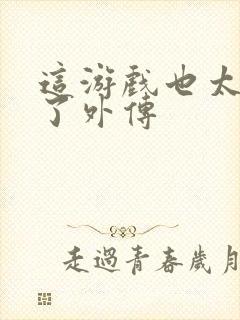 這游戲也太
了外傳
走過青春歲月